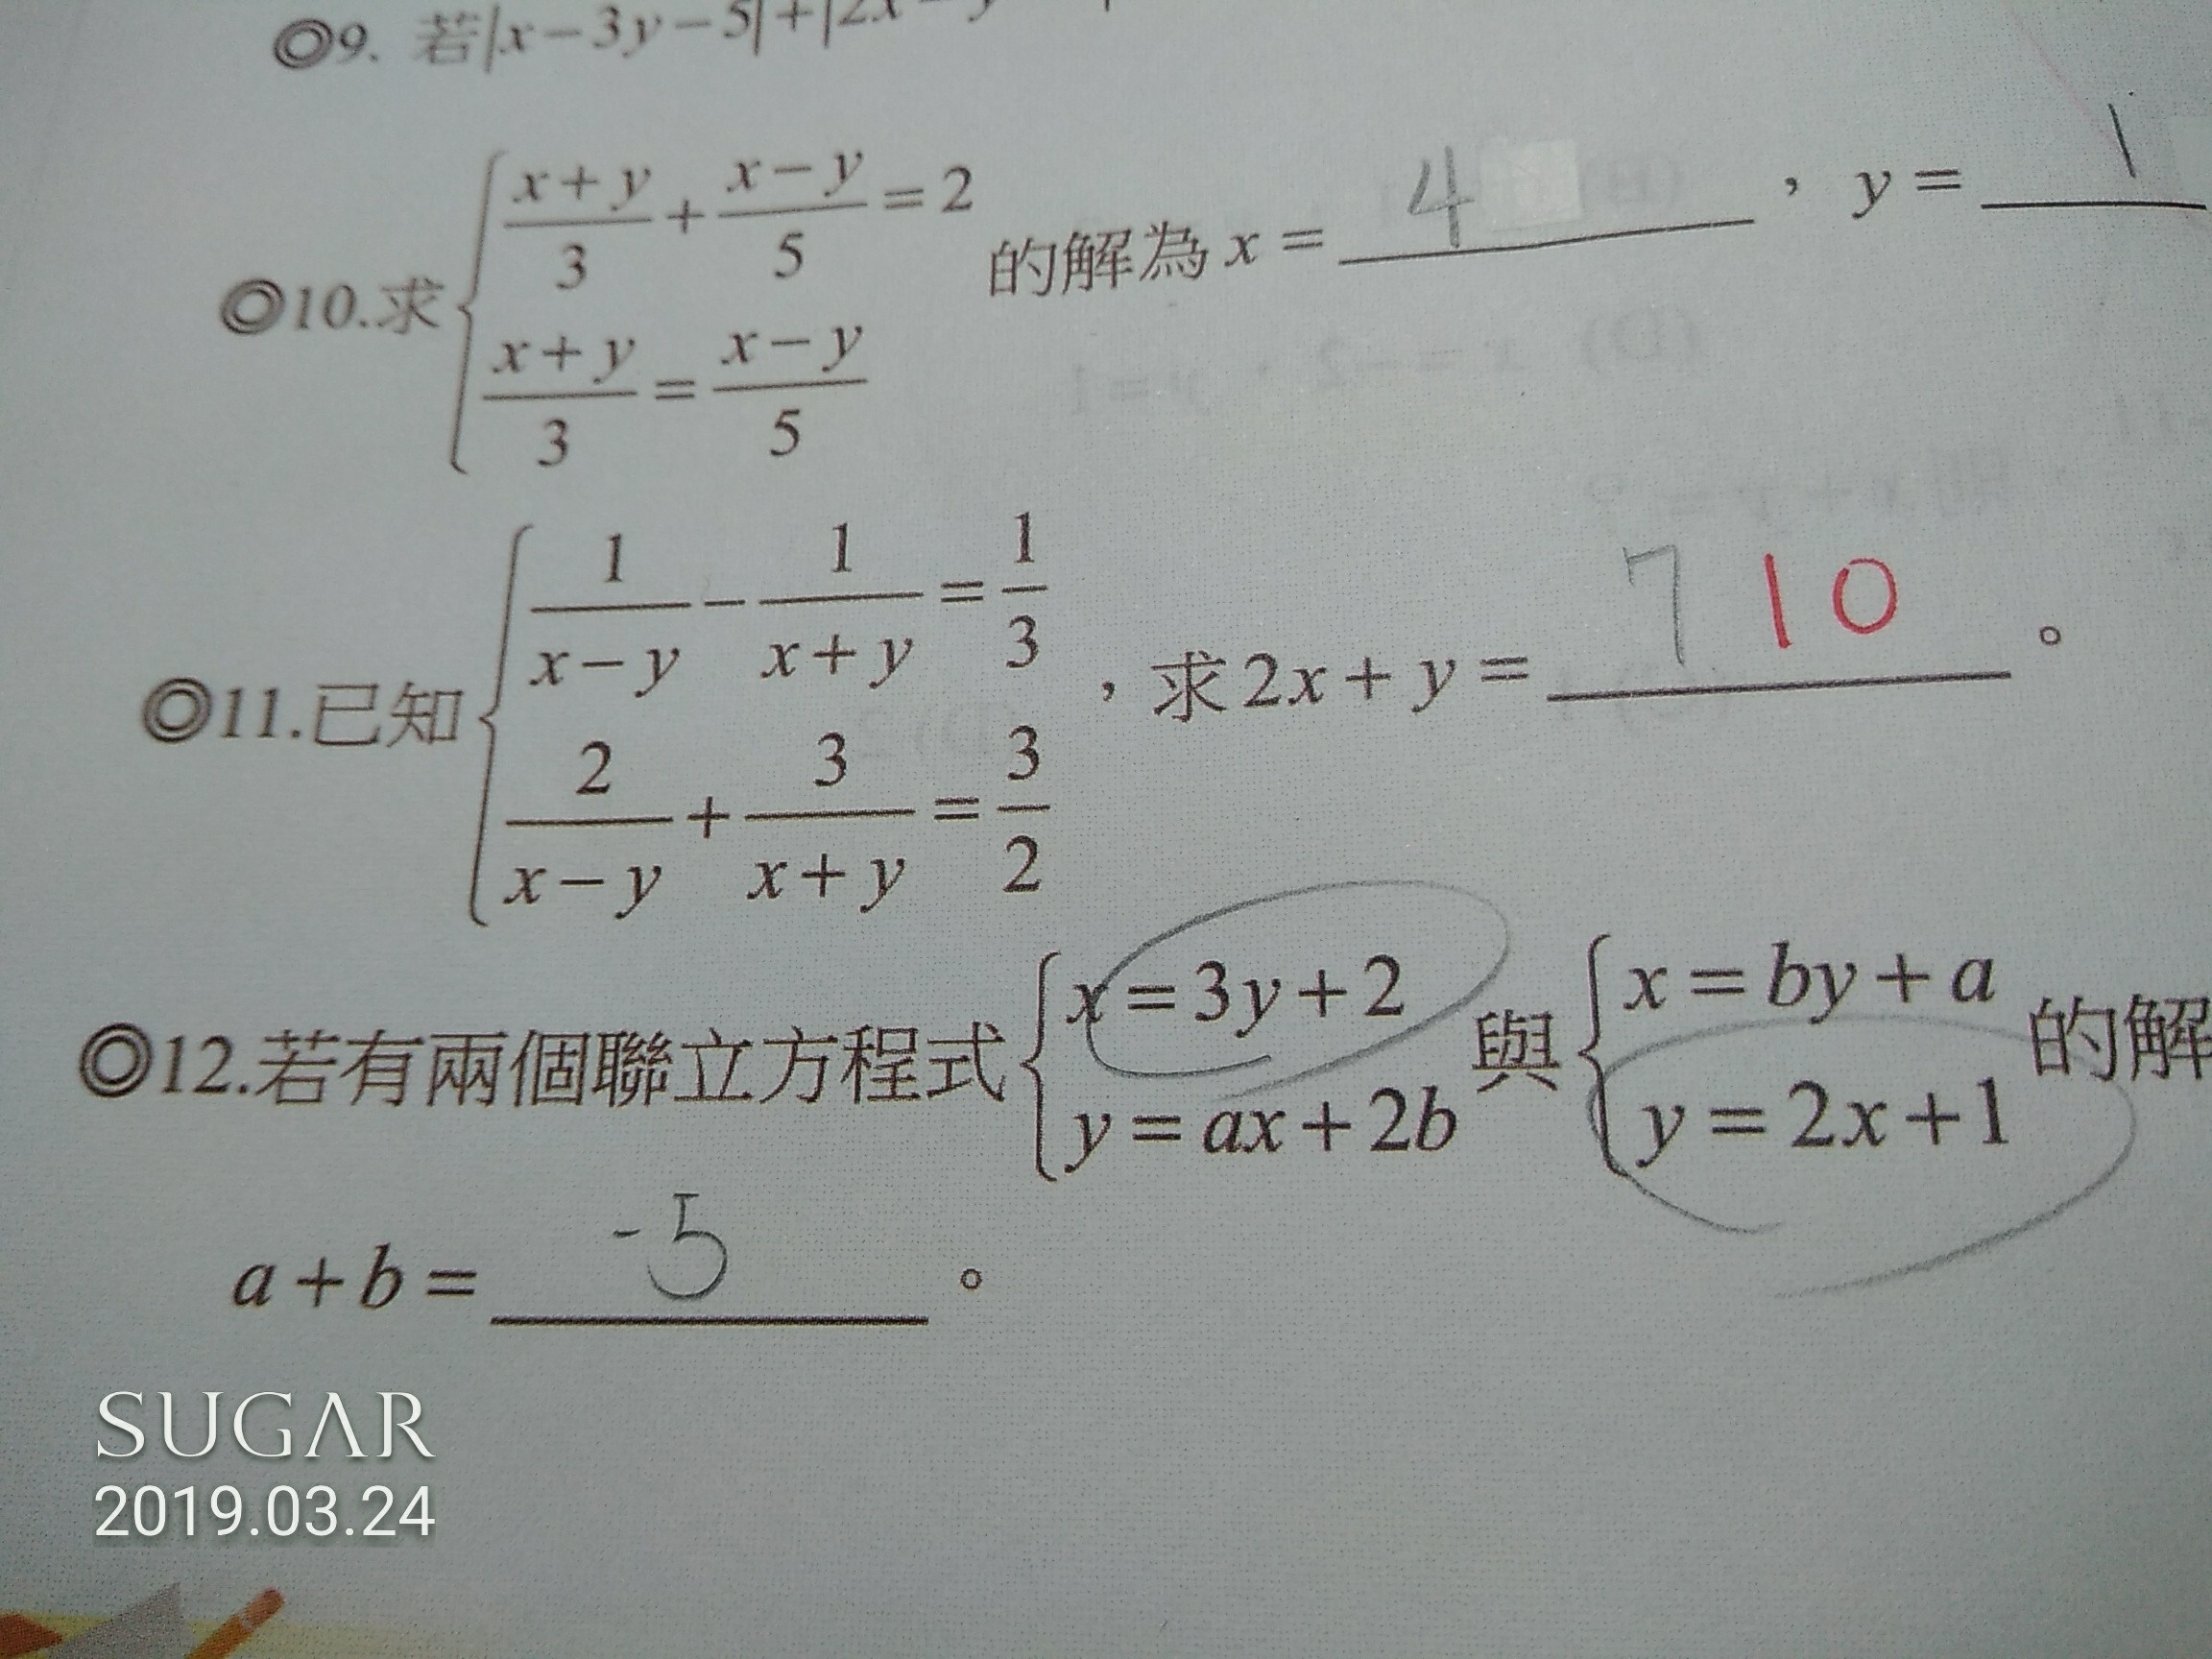 ◎9. 若|x－3y－5|＋|2x－y
◎10.求{(x＋y)/3＋(x－y)/5＝2, (x＋y)/3＝(x－y)/5 的解為x＝4，y＝1
◎11.已知{1/(x－y)－1/(x＋y)＝1/3, 2/(x－y)＋3/(x＋y)＝3/2，求2x＋y＝7 10。
◎12.若有兩個聯立方程式{x＝3y＋2, y＝ax＋2b 與{x＝by＋a, y＝2x＋1 的解
a＋b＝-5。
SUGAR
2019.03.24